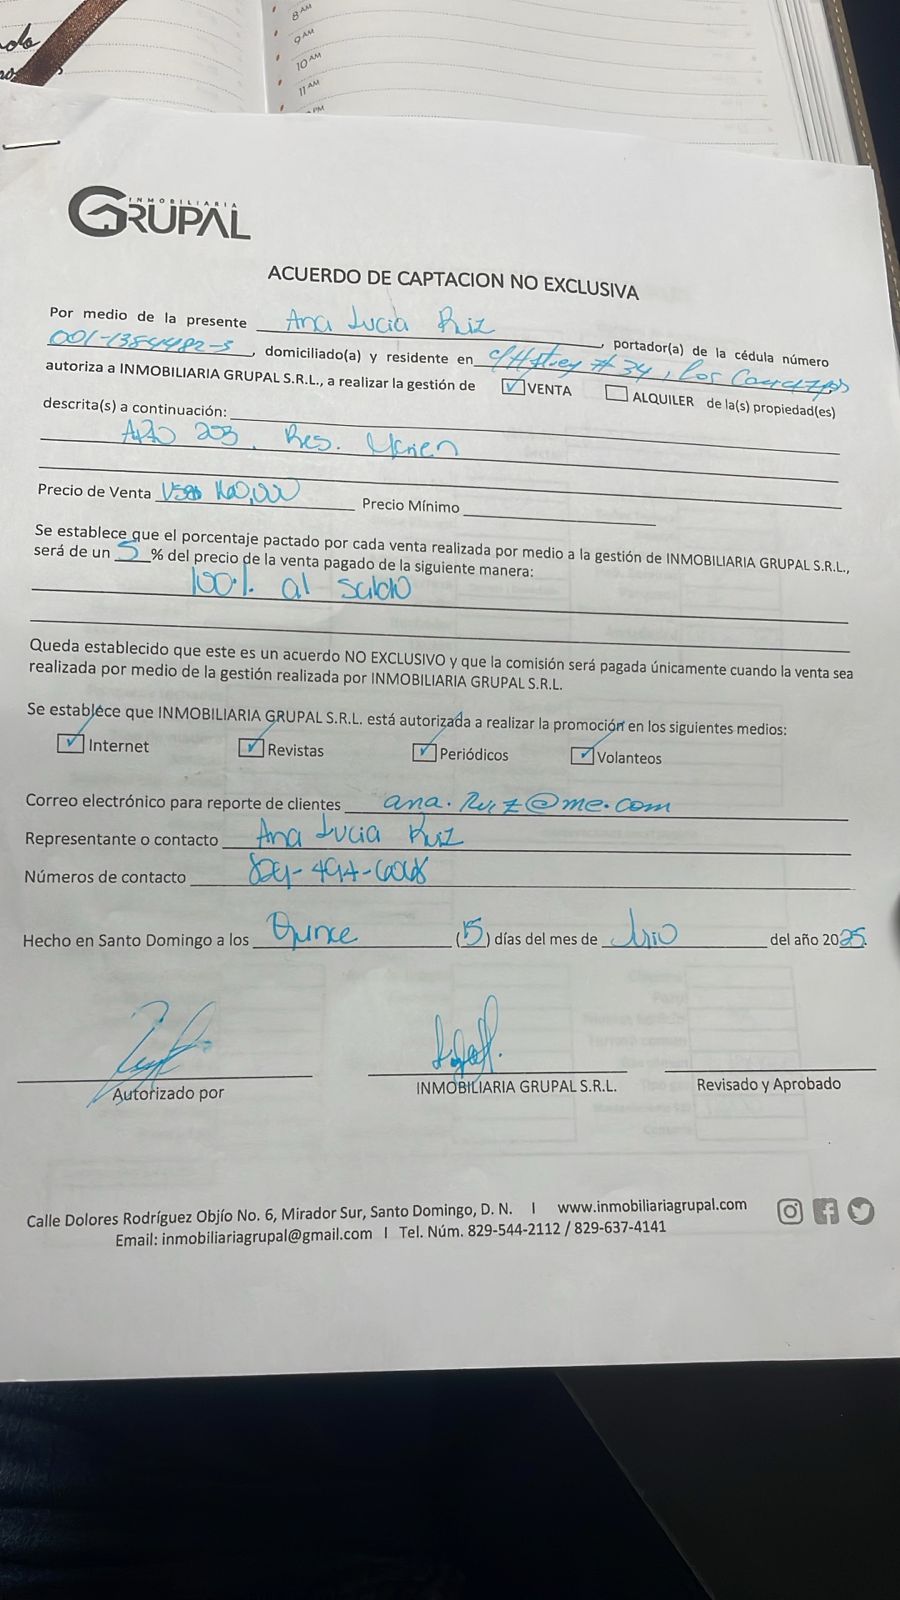 8 AM
9 AM
10 AM
11 AM
PM
INMOBILIARIA
GRUPAL
ACUERDO DE CAPTACION NO EXCLUSIVA
Por medio de la presente Ana Lucia Ruiz, portador(a) de la cédula número
001-1384482-5, domiciliado(a) y residente en # 34, los
autoriza a INMOBILIARIA GRUPAL S.R.L., a realizar la gestión de VENTA ALQUILER de la(s) propiedad(es)
descrita(s) a continuación:
Apto 203, Res.
Precio de Venta 160,000 Precio Mínimo
Se establece que el porcentaje pactado por cada venta realizada por medio a la gestión de INMOBILIARIA GRUPAL S.R.L.,
será de un 5 % del precio de la venta pagado de la siguiente manera:
100% al saldo
Queda establecido que este es un acuerdo NO EXCLUSIVO y que la comisión será pagada únicamente cuando la venta sea
realizada por medio de la gestión realizada por INMOBILIARIA GRUPAL S.R.L.
Se establece que INMOBILIARIA GRUPAL S.R.L. está autorizada a realizar la promoción en los siguientes medios:
Internet Revistas Periódicos Volanteos
Correo electrónico para reporte de clientes ana.Ruiz@me.com
Representante o contacto Ana Lucia Ruiz
Números de contacto
Hecho en Santo Domingo a los Quince (15) días del mes de del año 2025.
Autorizado por INMOBILIARIA GRUPAL S.R.L. Revisado y Aprobado
Calle Dolores Rodríguez Objío No. 6, Mirador Sur, Santo Domingo, D. N. I www.inmobiliariagrupal.com
Email: inmobiliariagrupal@gmail.com I Tel. Núm. 829-544-2112 / 829-637-4141